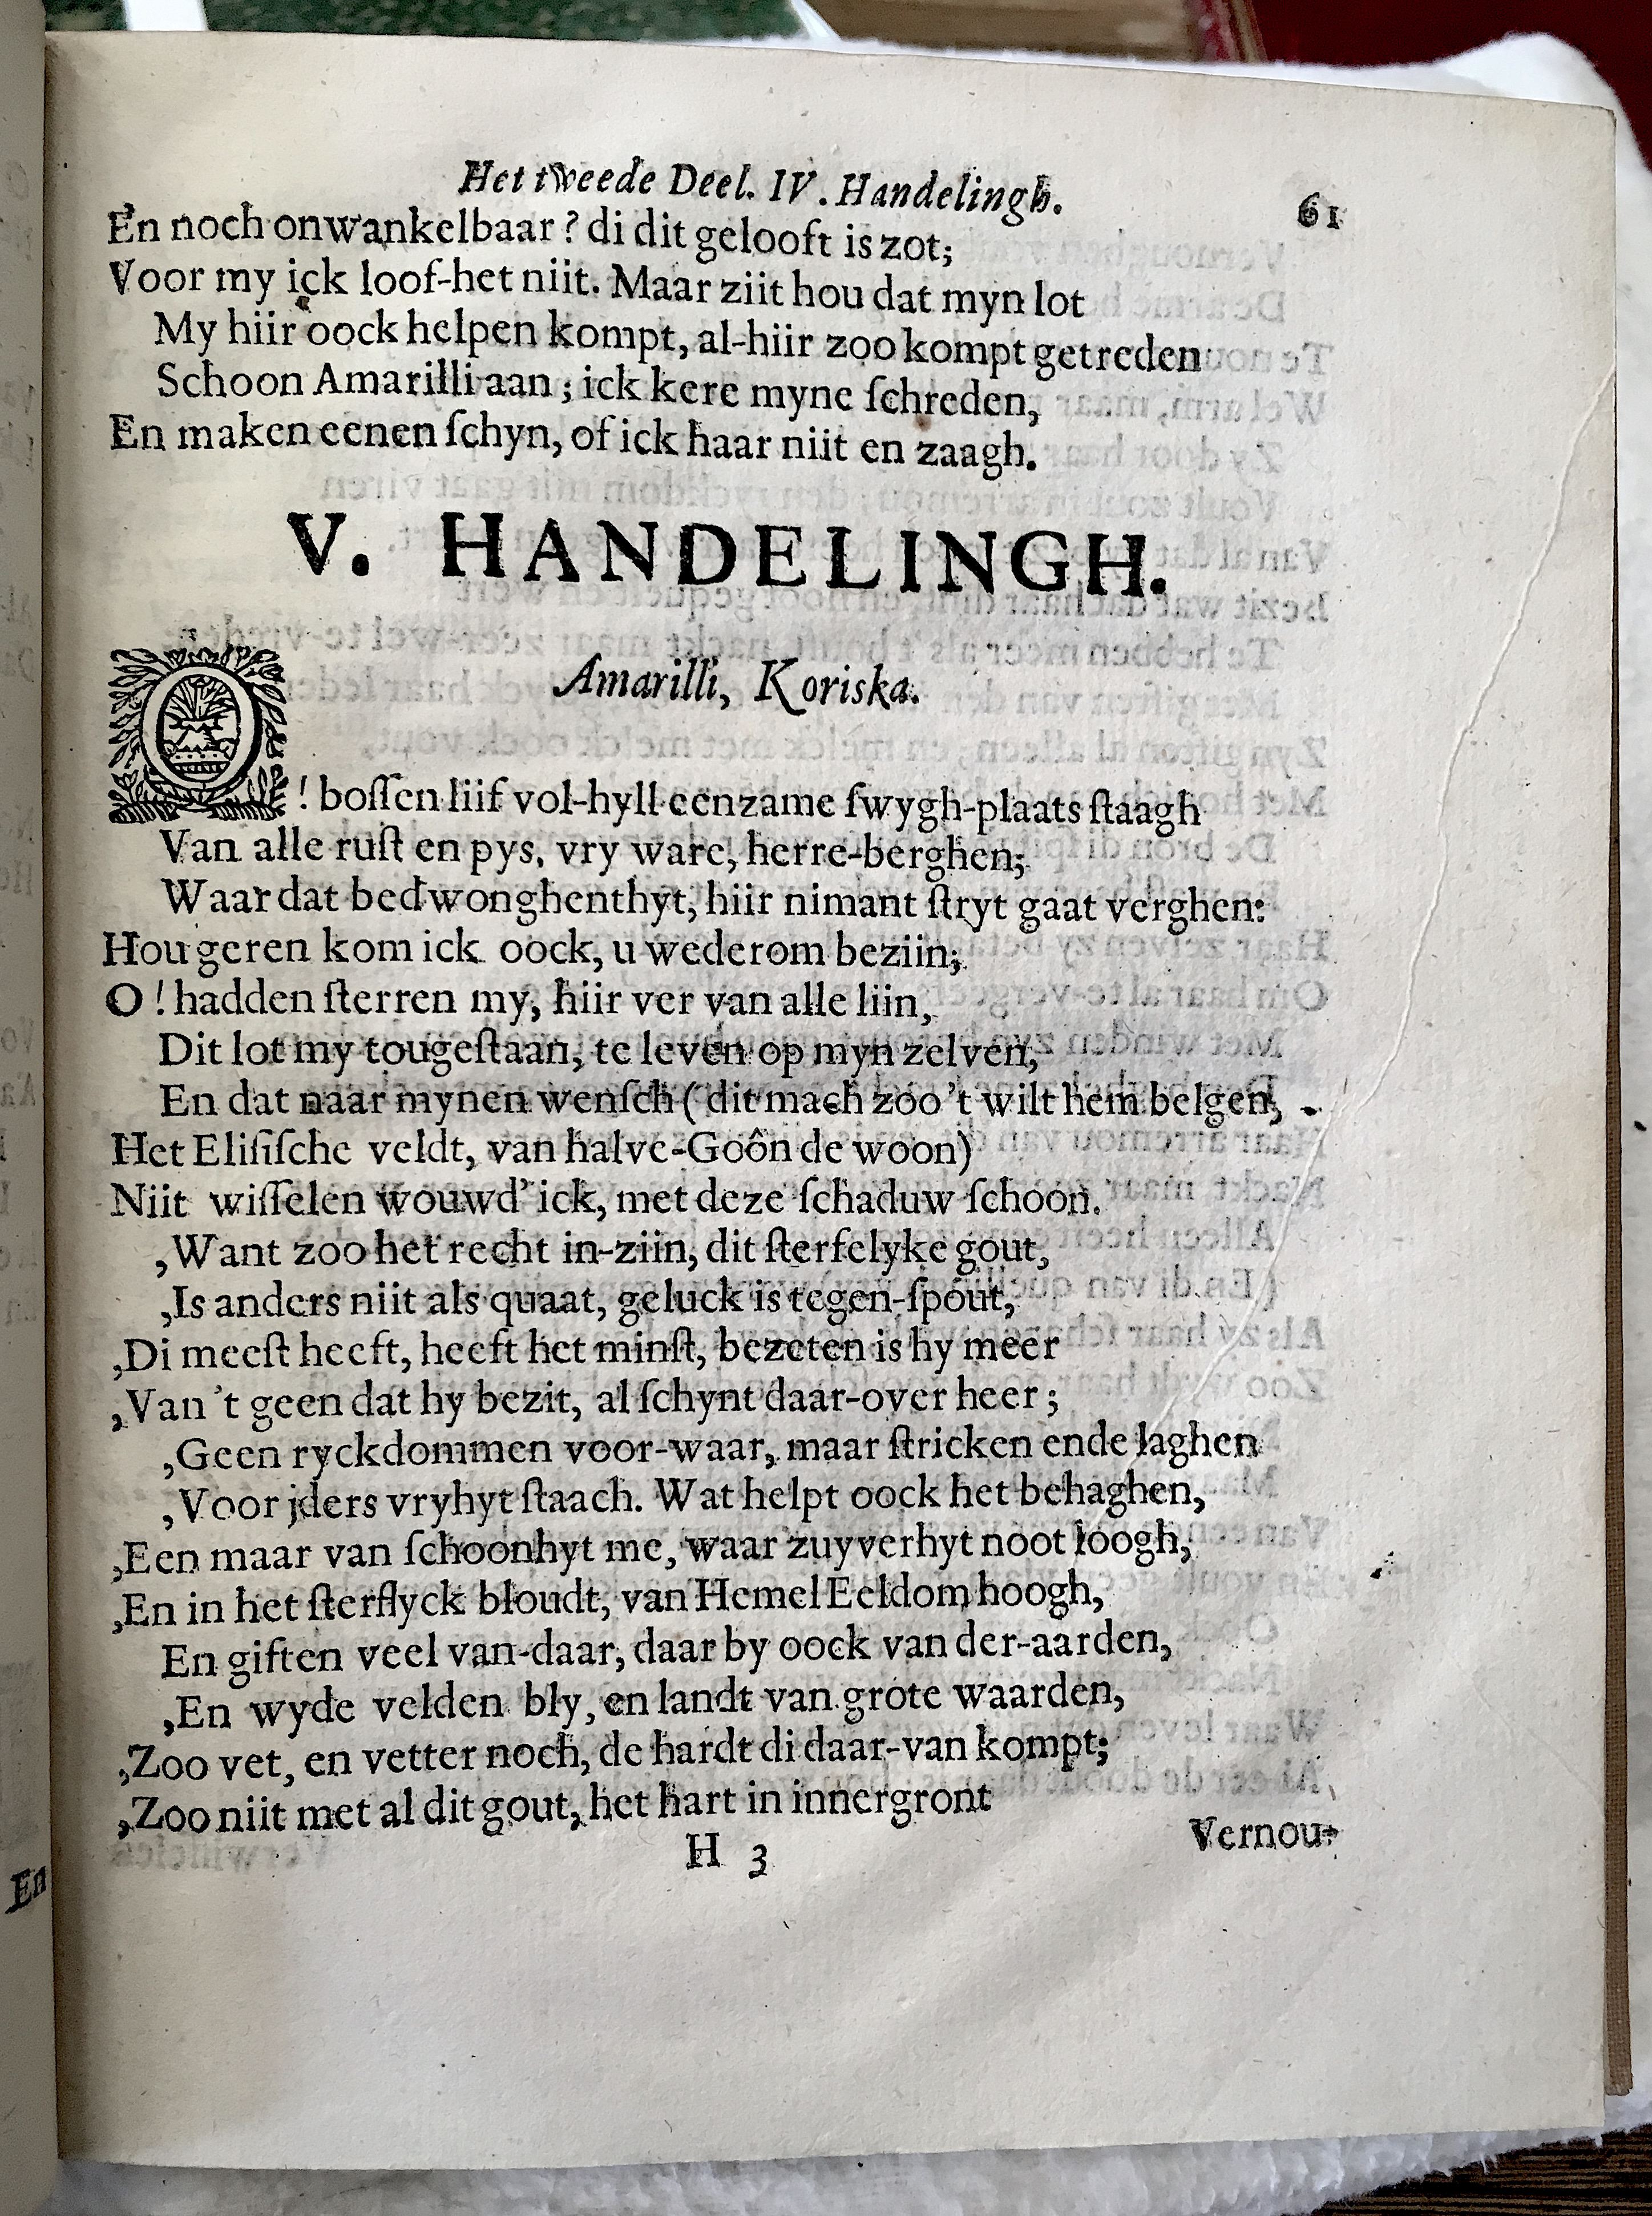 Het tweede Deel. IV. Handelingh. 61
En noch onwankelbaar? di dit gelooft is zot;
Voor my ick loof-het niit. Maar ziit hou dat myn lot
My hiir oock helpen kompt, al-hiir zoo kompt getreden
Schoon Amarilli aan; ick kere myne ſchreden,
En maken eenen ſchyn, of ick haar niit en zaagh.
V. HANDELINGH.
Amarilli, Koriska.
O! boſſen liif vol-hyll eenzame ſwygh-plaats ſtaagh
Van alle ruſt en pys, vry ware, herre-berghen;
Waar dat bedwonghenthyt, hiir nimant ſtryt gaat verghen:
Hou geren kom ick oock, u wederom beziin;
O! hadden ſterren my, hiir ver van alle liin,
Dit lot my tougeſtaan, te leven op myn zelven,
En dat naar mynen wenſch (dit mach zoo 't wilt hem belgen,
Het Eliſiſche veldt, van halve-Goôn de woon)
Niit wiſſelen wouwd' ick, met deze ſchaduw ſchoon.
,Want zoo het recht in-ziin, dit ſterfelyke gout,
,Is anders niit als quaat, geluck is tegen-ſpout,
,Di meeſt heeft, heeft het minſt, bezeten is hy meer
,Van 't geen dat hy bezit, al ſchynt daar-over heer;
,Geen ryckdommen voor-waar, maar ſtricken ende laghen
,Voor jders vryhyt ſtaach. Wat helpt oock het behaghen,
,Een maar van ſchoonhyt me, waar zuyverhyt noot loogh,
,En in het ſterflyck bloudt, van Hemel Eeldom hoogh,
En giften veel van-daar, daar by oock van der-aarden,
,En wyde velden bly, en landt van grote waarden,
,Zoo vet, en vetter noch, de hardt di daar-van kompt;
,Zoo niit met al dit gout, het hart in innergront
H 3 Vernou-
En